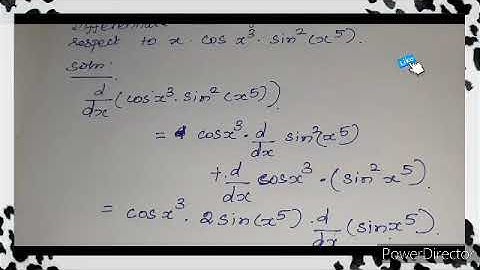 respect to x. cos x³. sin² (x⁵).
Soln:
d/dx (cos x³. sin² (x⁵))
= cos x³. d/dx sin² (x⁵)
+ d/dx cos x³. (sin² x⁵).
= cos x³. 2 sin (x⁵). d/dx (sin x⁵).
Like
PowerDirector